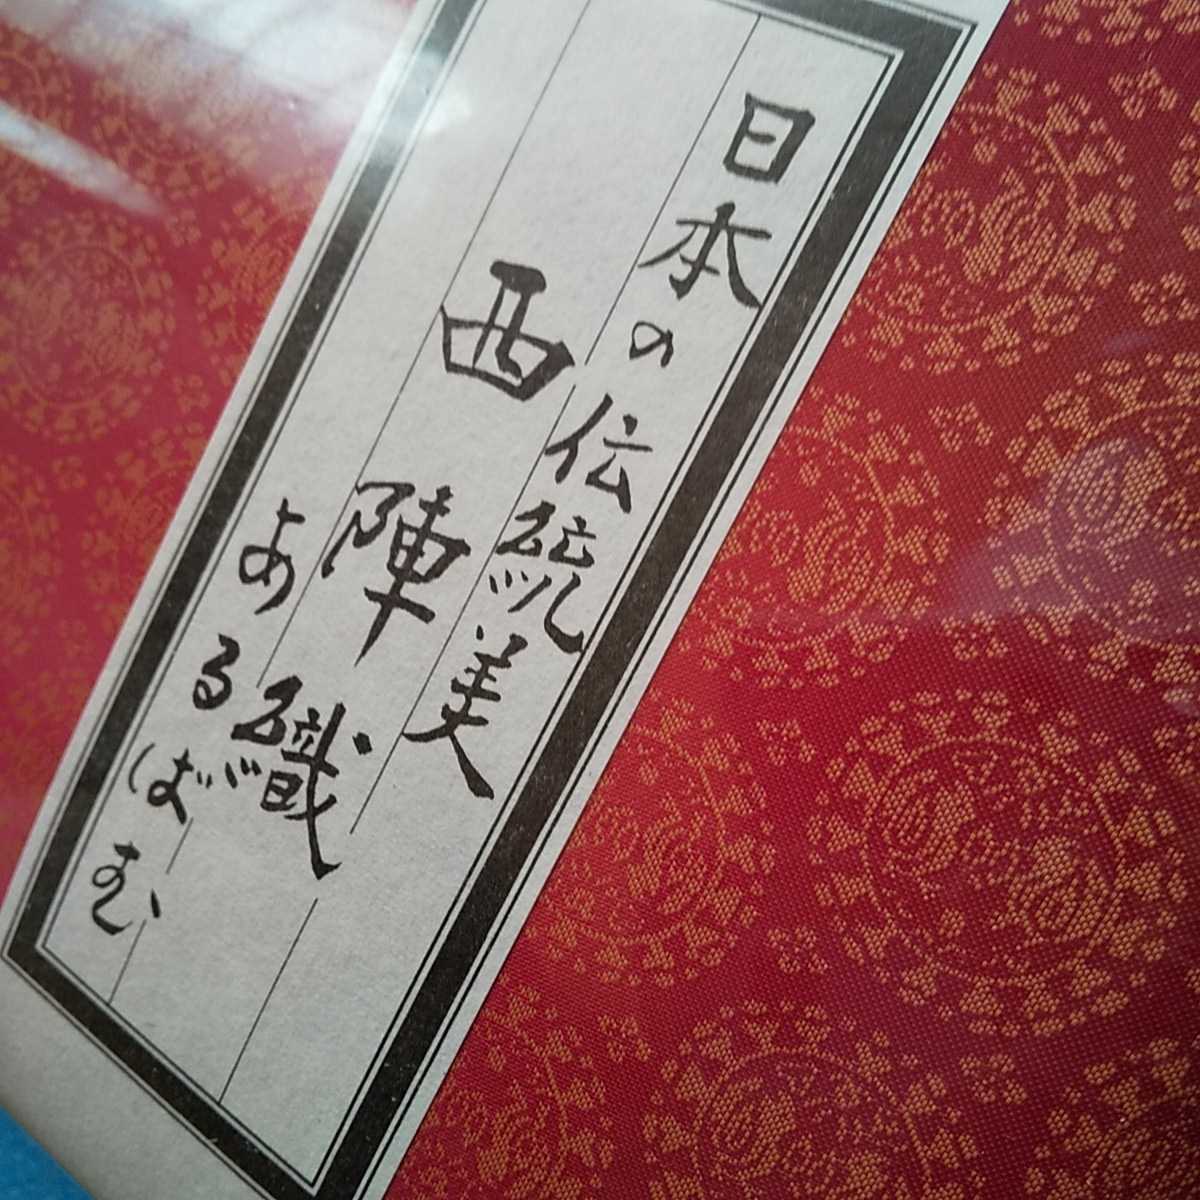 日本の伝統美
西陣織
あるばむ